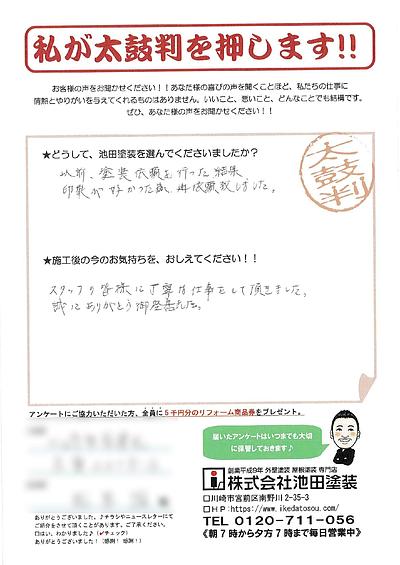 私が太鼓判を押します!!
お客様の声をお聞かせください！！あなた様の喜びの声を聞くことほど、私たちの仕事に
情熱とやりがいを与えてくれるものはありません。いいこと、悪いこと、どんなことでも結構です。
ぜひ、あなた様の声をお聞かせください！！
★どうして、池田塗装を選んでくださいましたか？
太鼓判
以前、塗装依頼を行った結果、
印象が好かった為、再依頼致しました。
★施工後の今のお気持ちを、おしえてください！！
スタッフの皆様に丁寧な仕事をして頂きました。
誠にありがとう御座居ました。
アンケートにご協力いただいた方、全員に５千円分のリフォーム商品券をプレゼント。
届いたアンケートはいつまでも大切
に保管しておきます♪
創業平成9年 外壁塗装 屋根塗装 専門店
株式会社池田塗装
口川崎市宮前区南野川2-35-3
口HP:https://www.ikedatosou.com/
TEL 0120-711-056
《朝7時から夕方7時まで毎日営業中》
ありがとうございました。♪チラシやニュースレターにて
ご紹介をさせて頂くことがあります。ご了承ください。
口はい。わかりました♪（✔チェック）
ありがとうございました！（感謝！感謝！）